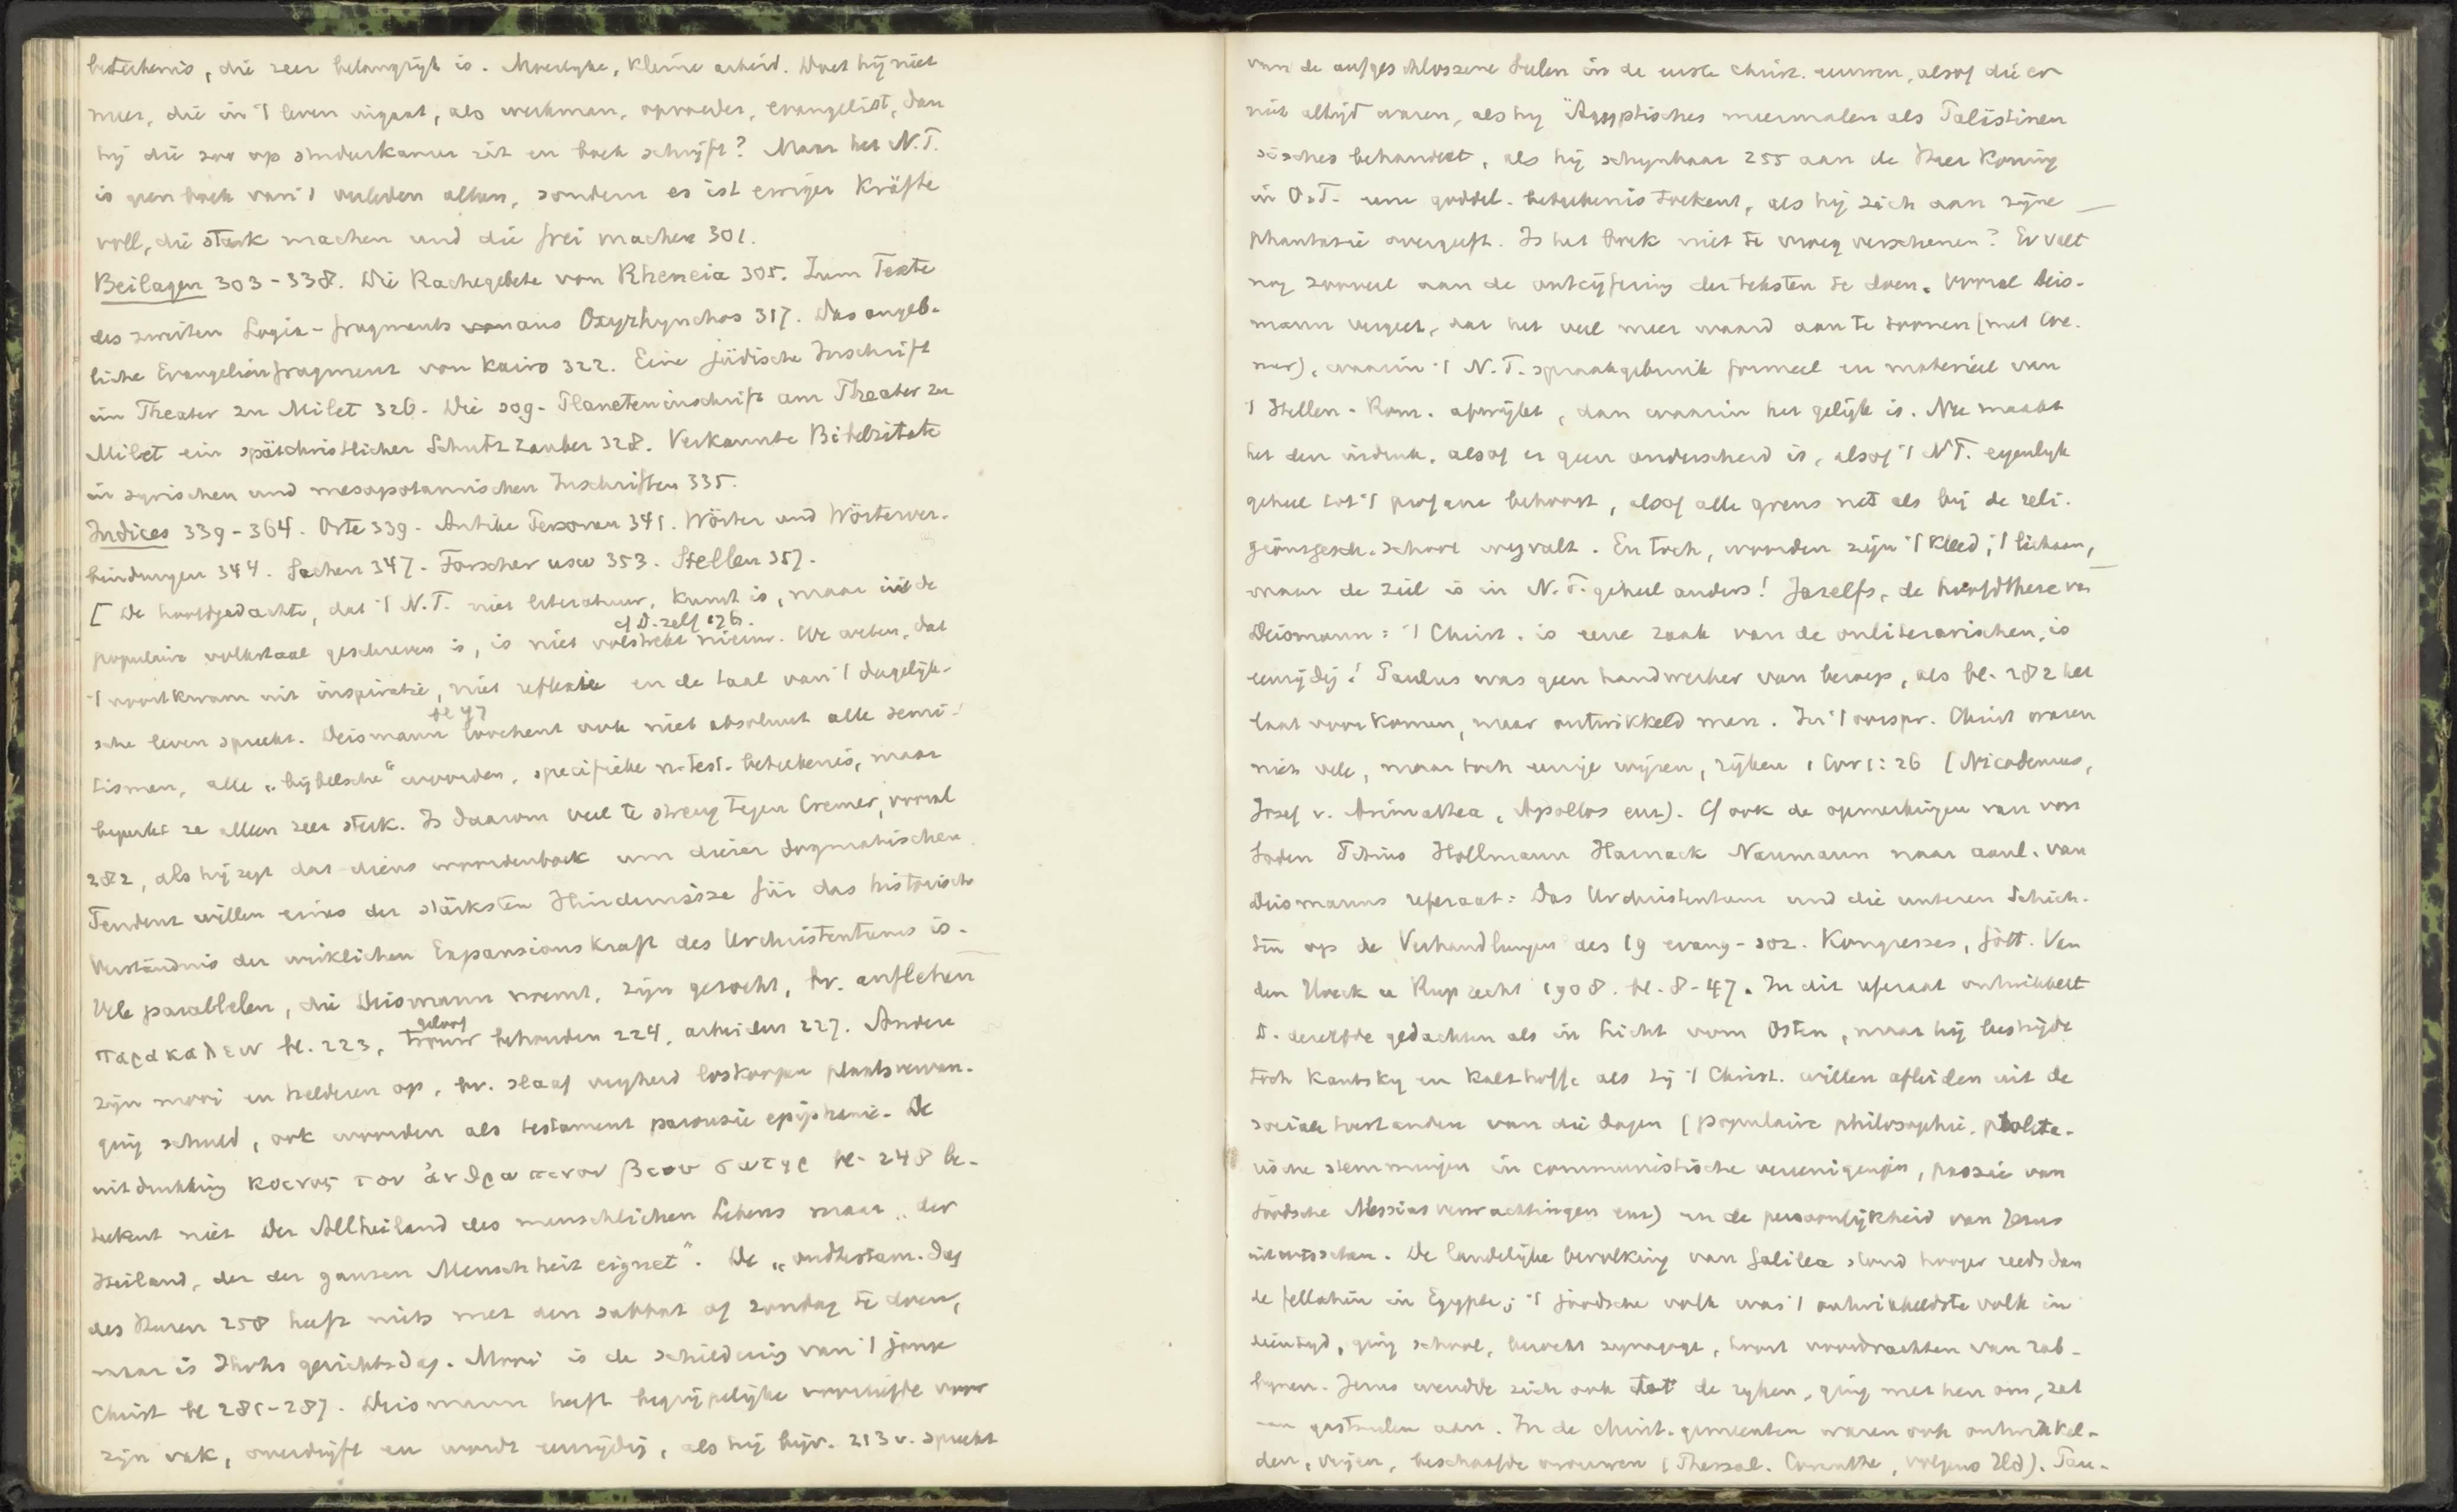 beteekenis, die zeer belangrijk is. Moeilyke, kleine arbeid. Doet hij niet
meer, die in 't leven ingaat, als werkman, opvoeder, evangelist, dan
hij die zoo op studeerkamer zit en boek schrijft? Maar het N.T.
is geen boek van 't verleden alleen, sondern es ist ewiger Kräfte
voll, die stark machen und die frei machen 301.
Beilagen 303-338. Die Rachegebete von Rheneia 305. Zum Texte
des zweiten Logia-fragments aus Oxyrhynchos 317. Das angeb-
liche Evangelienfragment von Kairo 322. Eine jüdische Inschrift
im Theater zu Milet 326. Die sog. Planeteninschrift am Theater zu
Milet ein spätchristlicher Schutzzauber 328. Verkannte Bibelzitate
in syrischen und mesopotamischen Inschriften 335.
Indices 339-364. Orte 339. Antike Personen 341. Wörter und Wörterver-
bindungen 344. Sachen 347. Forscher usw 353. Stellen 357.
[ De hoofdgedachte, dat 't N.T. niet literatuur, kunst is, maar in de
cf D. zelf
populaire volkstaal geschreven is, is niet volstrekt nieuw. We weten, dat
't voortkwam uit inspiratie, niet reflexie en de taal van 't dagelijk-
bl 47
sche leven spreekt. Deismann loochent ook niet absoluut alle semi-
tismen, alle „bijbelsche" woorden, specifieke n-test. beteekenis, maar
beperkt ze alleen zeer sterk. Is daarom veel te streng tegen Cremer, vooral
282, als hij zegt dat diens woordenboek um dieser dogmatischen
Tendenz willen eines der stärksten Hindernisse für das historische
Verständnis der wirklichen Expansionskraft des Urchristentums is.
Vele parallelen, die Deismann noemt, zijn gezocht, bv. anflehen
παρακαλειν bl. 223,
geloof
trouw behouden 224, arbeiden 227. Andere
zijn mooi en helderen op, bv. slaaf vryheid loskoopen plaatsvervan-
ging schuld, ook woorden als testament parousie epiphanie. De
uitdrukking κοινος του ἀνθρωπινου βιου σωτηρ bl. 248 be-
teekent niet Der Allheiland des menschlichen Lebens maar „der
Heiland, der der ganzen Menschheit eignet". De „oudtestam. dag
des Heeren 258 heeft niets met den sabbat of zondag te doen,
maar is Jhvhs gerichtsdag. Mooi is de schildering van 't jonge
Christ bl 285-287. Deismann heeft begrijpelijke voorliefde voor
zijn vak, overdrijft en wordt eenzijdig, als hij bijv. 213 v. spreekt
van de aufgeschlossene Seelen in de eerste christ. eeuwen, alsof die er
niet altijd waren, als hij Ägyptisches meermalen als Palästinen
sisches behandelt, als hij schynbaar 255 aan de Heer Koning
in O.T. eene goddel. beteekenis toekent, als hij zich aan zijne
phantasie overgeeft. Is het boek niet te vroeg verschenen? Er valt
nog zooveel aan de ontcijfering der teksten te doen. Vooral Deis-
mann vergeet, dat het veel meer waard aan te toonen (met Cre-
mer), waarin 't N.T. spraakgebruik formeel en materieel van
't Hellen-Rom. afwijkt, dan waarin het gelijk is. Nu maakt
het den indruk, alsof er geen onderscheid is, alsof 't N.T. eigenlyk
geheel tot 't profane behoort, alsof alle grens net als bij de reli-
gionsgesch. school wegvalt. En toch, woorden zijn 't kleed, 't lichaam,
maar de ziel is in N.T. geheel anders! Jazelfs, de hoofdthese van
Deismann: 't Christ. is eene zaak van de onliterarischen, is
eenzijdig! Paulus was geen handwerker van beroep, als bl. 282 het
laat voorkomen, maar ontwikkeld man. In 't oorspr. Christ waren
niet vele, maar toch eenige wijzen, rijken 1 Cor 1:26 (Nicodemus,
Josef v. Arimathea, Apollos enz). Cf ook de opmerkingen van von
Soden Titius Hollmann Harnack Naumann naar aanl. van
Deismanns referaat: Das Urchristentum und die unteren Schich-
ten op de Verhandlungen des 19 evang-soz. Kongresses, Gött. Van
den Hoeck u Ruprecht 1908. bl. 8-47. In dit referaat ontwikkelt
D. dezelfde gedachten als in Licht vom Osten, maar hij bestrijdt
toch Kautsky en Kalthoff, als zij 't Christ. willen afleiden uit de
sociale toestanden van die dagen (populaire philosophie, proleta-
rische stemmingen in communistische vereenigingen, poezie van
Joodsche Messiasverwachtingen enz) en de persoonlijkheid van Jezus
uitwisschen. De landelijke bevolking van Galilea stond hooger reeds dan
de fellahin in Egypte; 't joodsche volk was 't ontwikkeldste volk in
dien tijd, ging school, bezocht synagoge, hoort voordrachten van rab-
bijnen. Jezus wendde zich ook tot de ryken, ging met hen om, zat
aan gastmalen aan. In de christ. gemeenten waren ook ontwikkel-
den, vrijen, beschaafde vrouwen (Thessal. Corinthe, volgens Hd). Pau-